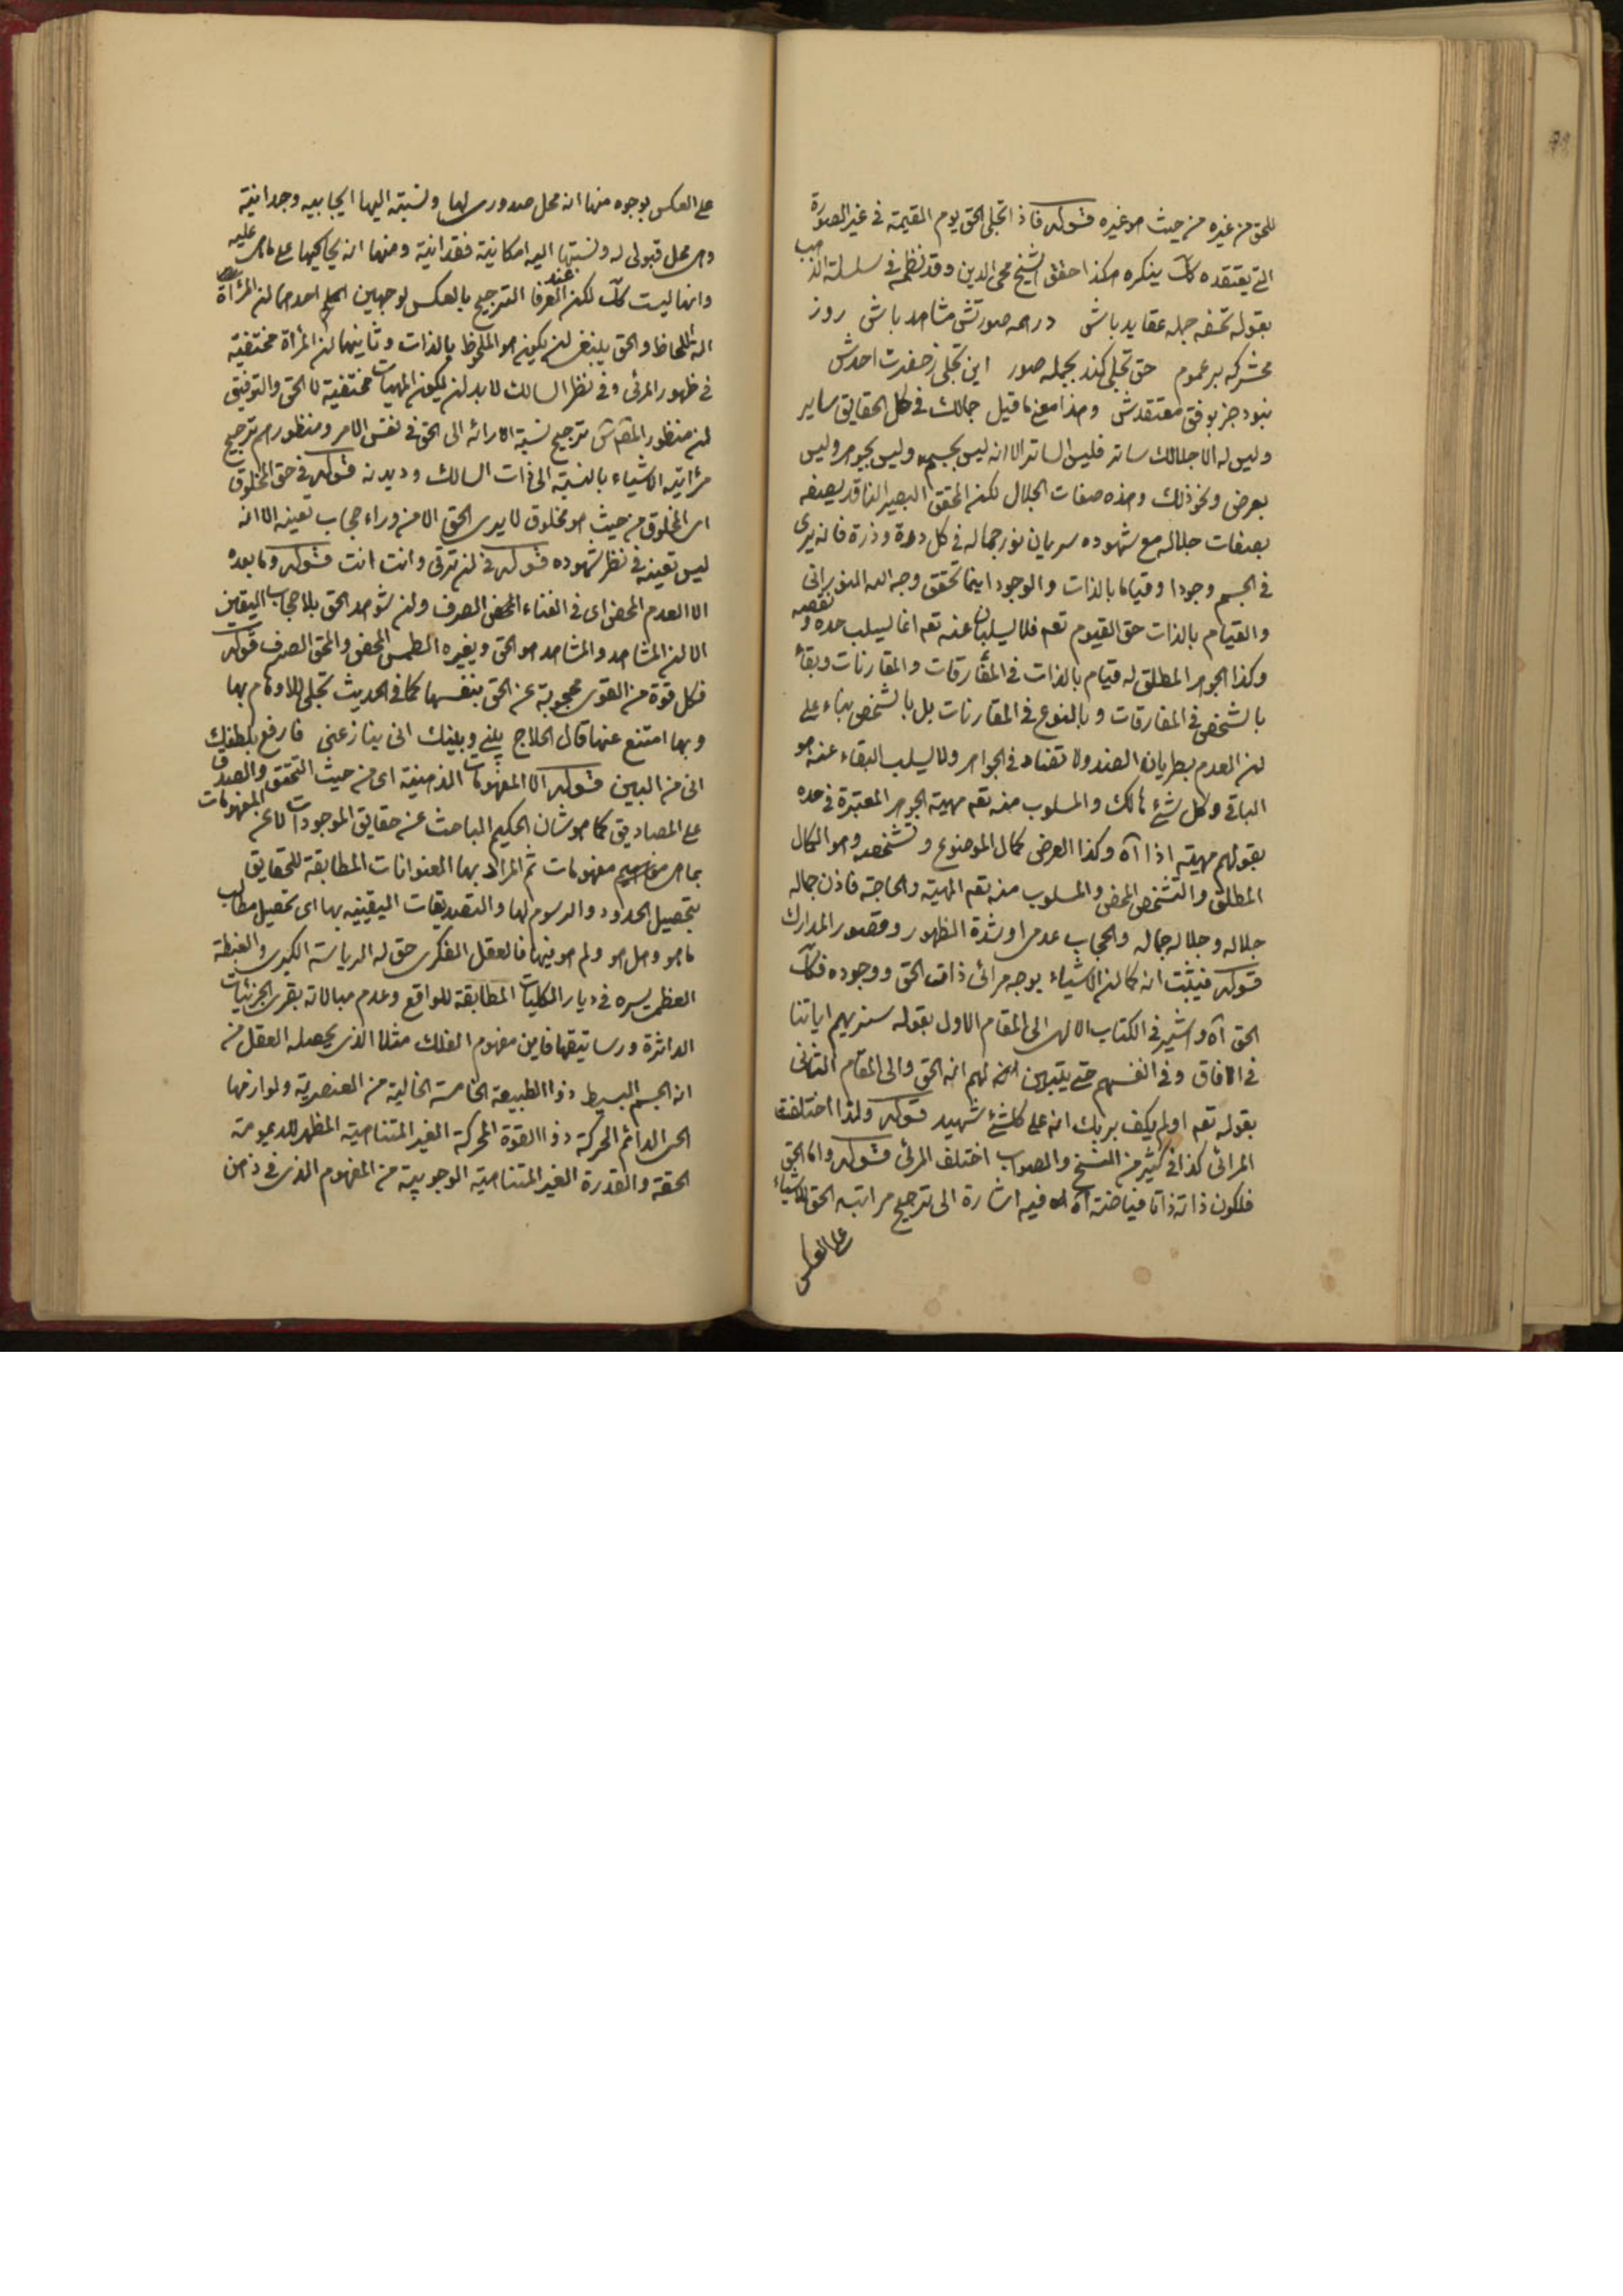 للحق من غيره من حيث هو غيره قوله فاذا تجلى الحق يوم القيمة في غير الصورة
التي يعتقده كك ينكره هكذا حقق الشيخ محى الدين وقد نظمه في سلسلة الذهب
بقوله تحفه جمله عقايد باش در همه صورتش مشاهد باش روز
محشر كه بر عموم حق تجلى كند بجمله صور اين تجلى ز حضرت احدش
نبود جز بوفق معتقدش وهذا معنى ما قيل جمالك في كل الحقايق ساير
وليس له الا جلالك ساتر فليس الساتر الا انه ليس بجسم وليس بجوهر وليس
بعرض ونحو ذلك وهذه صفات الجلال لكن المحقق البصير الناقد يصفه
بصفات جلاله مع شهوده سريان نور جماله في كل درة وذرة فانه يرى
في الجسم وجودا وقياما بالذات والوجود اينما تحقق وجه الله النوراني
والقيام بالذات حق القيوم تعه فلا يسلبان عنه تعه انما يسلب حده ونقصه
وكذا الجوهر المطلق له قيام بالذات في المفارقات والمقارنات وبقاء
بالشخص في المفارقات وبالنوع في المقارنات بل بالشخص بناء على
ان العدم بطريان الضد ولا تضاد في الجواهر ولا يسلب البقاء عنه هو
الباقي وكل شئ هالك والمسلوب منه تعه مهية الجوهر المعتبرة في حده
بقولهم مهية اذا آه وكذا العرض كمال الموضوع وتشخصه وهو الكمال
المطلق والتشخص المحض والمسلوب منه تعه المهية والحاجة فاذن جماله
جلاله وجلاله جماله والحجاب عدمى او شدة الظهور وقصور المدارك
قوله فيثبت انه كما ان الاشياء بوجه مرائى ذات الحق ووجوده فكك
الحق آه واشير في الكتاب الالهى الى المقام الاول بقوله سنريهم اياتنا
في الافاق وفي انفسهم حتى يتبين لهم انه الحق والى المقام الثاني
بقوله تعه اولم يكف بربك انه على كلشئ شهيد قوله ولذا اختلفت
المرائى كذا في كثير من النسخ والصواب اختلف المرئى قوله واما الحق
فلكون ذاته ذاتا فياضة آه فيه اشارة الى ترجيح مراتيه الحق للاشياء
على العكس
على العكس بوجوه منها انه محل صدورى لها ونسبته اليها ايجابيه وجدانية
وهى محل قبولى له ونسبتها اليه امكانية فقدانية ومنها انه يحاكيها على ما هى عليه
وانها ليست كك لكن عند العرفا الترجيح بالعكس لوجهين احدهما ان المرأة
الة اللحاظ والحق ينبغى ان يكون هو الملحوظ بالذات وثانيهما ان المرأة مختفية
في ظهور المرئى وفي نظر السالك لا بد ان يكون المهيات مختفية لا الحق والتوفيق
ان منظور المص س ترجيح نسبة الارائه الى الحق في نفس الامر ومنظورهم ترجيح
مرأتية الاشياء بالنسبة الى ذات السالك وديدنه قوله في حق المخلوق
اى المخلوق من حيث هو مخلوق لا يرى الحق الا من وراء حجاب تعينه الا انه
ليس تعينه في نظر شهوده قوله في ان ترقى وانت انت قوله وما بعده
الا العدم المحض اى في الفناء المحض الصرف ولن يشوهد الحق بلا حجاب اليقين
الا ان المشاهد والمشاهد هو الحق وبغيره الطمس المحض والمحق الصرف قوله
فكل قوة من القوى محجوبة عن الحق بنفسها كما في الحديث تجلى للاوهام بها
وبها امتنع عنها قال الحلاج بينى وبينك انى ينازعنى فارفع بلطفك
انى من البين قوله الا المفهومات الذهنية اى من حيث التحقق والصدق
على المصاديق كما هو شان الحكيم الباحث عن حقايق الموجودات لا عن المفهومات
بما هى مفاهيم مفهومات ثم المراد بها العنوانات المطابقة للحقايق
بتحصيل الحدود والرسوم لها والتصديقات اليقينيه بها اى تحصيل مطالب
ما هو وهل هو ولم هو فيها فالعقل الفكرى حق له الرياسة الكبرى والغبطة
العظمى يسره في ديار الكليات المطابقة للواقع وعدم مبالاته بقرى الجزئيات
الداثرة ورساتيقها فاين مفهوم الفلك مثلا الذى يحصله العقل من
انه الجسم البسيط ذو الطبيعة الخامسة الخالية من العنصرية ولوازمها
الحى الدائم الحركة ذو القوة المحركة الغير المتناهية المظهر للديمومة
الحقة والقدرة الغير المتناهية الوجوبية من المفهوم الذى في ذهن